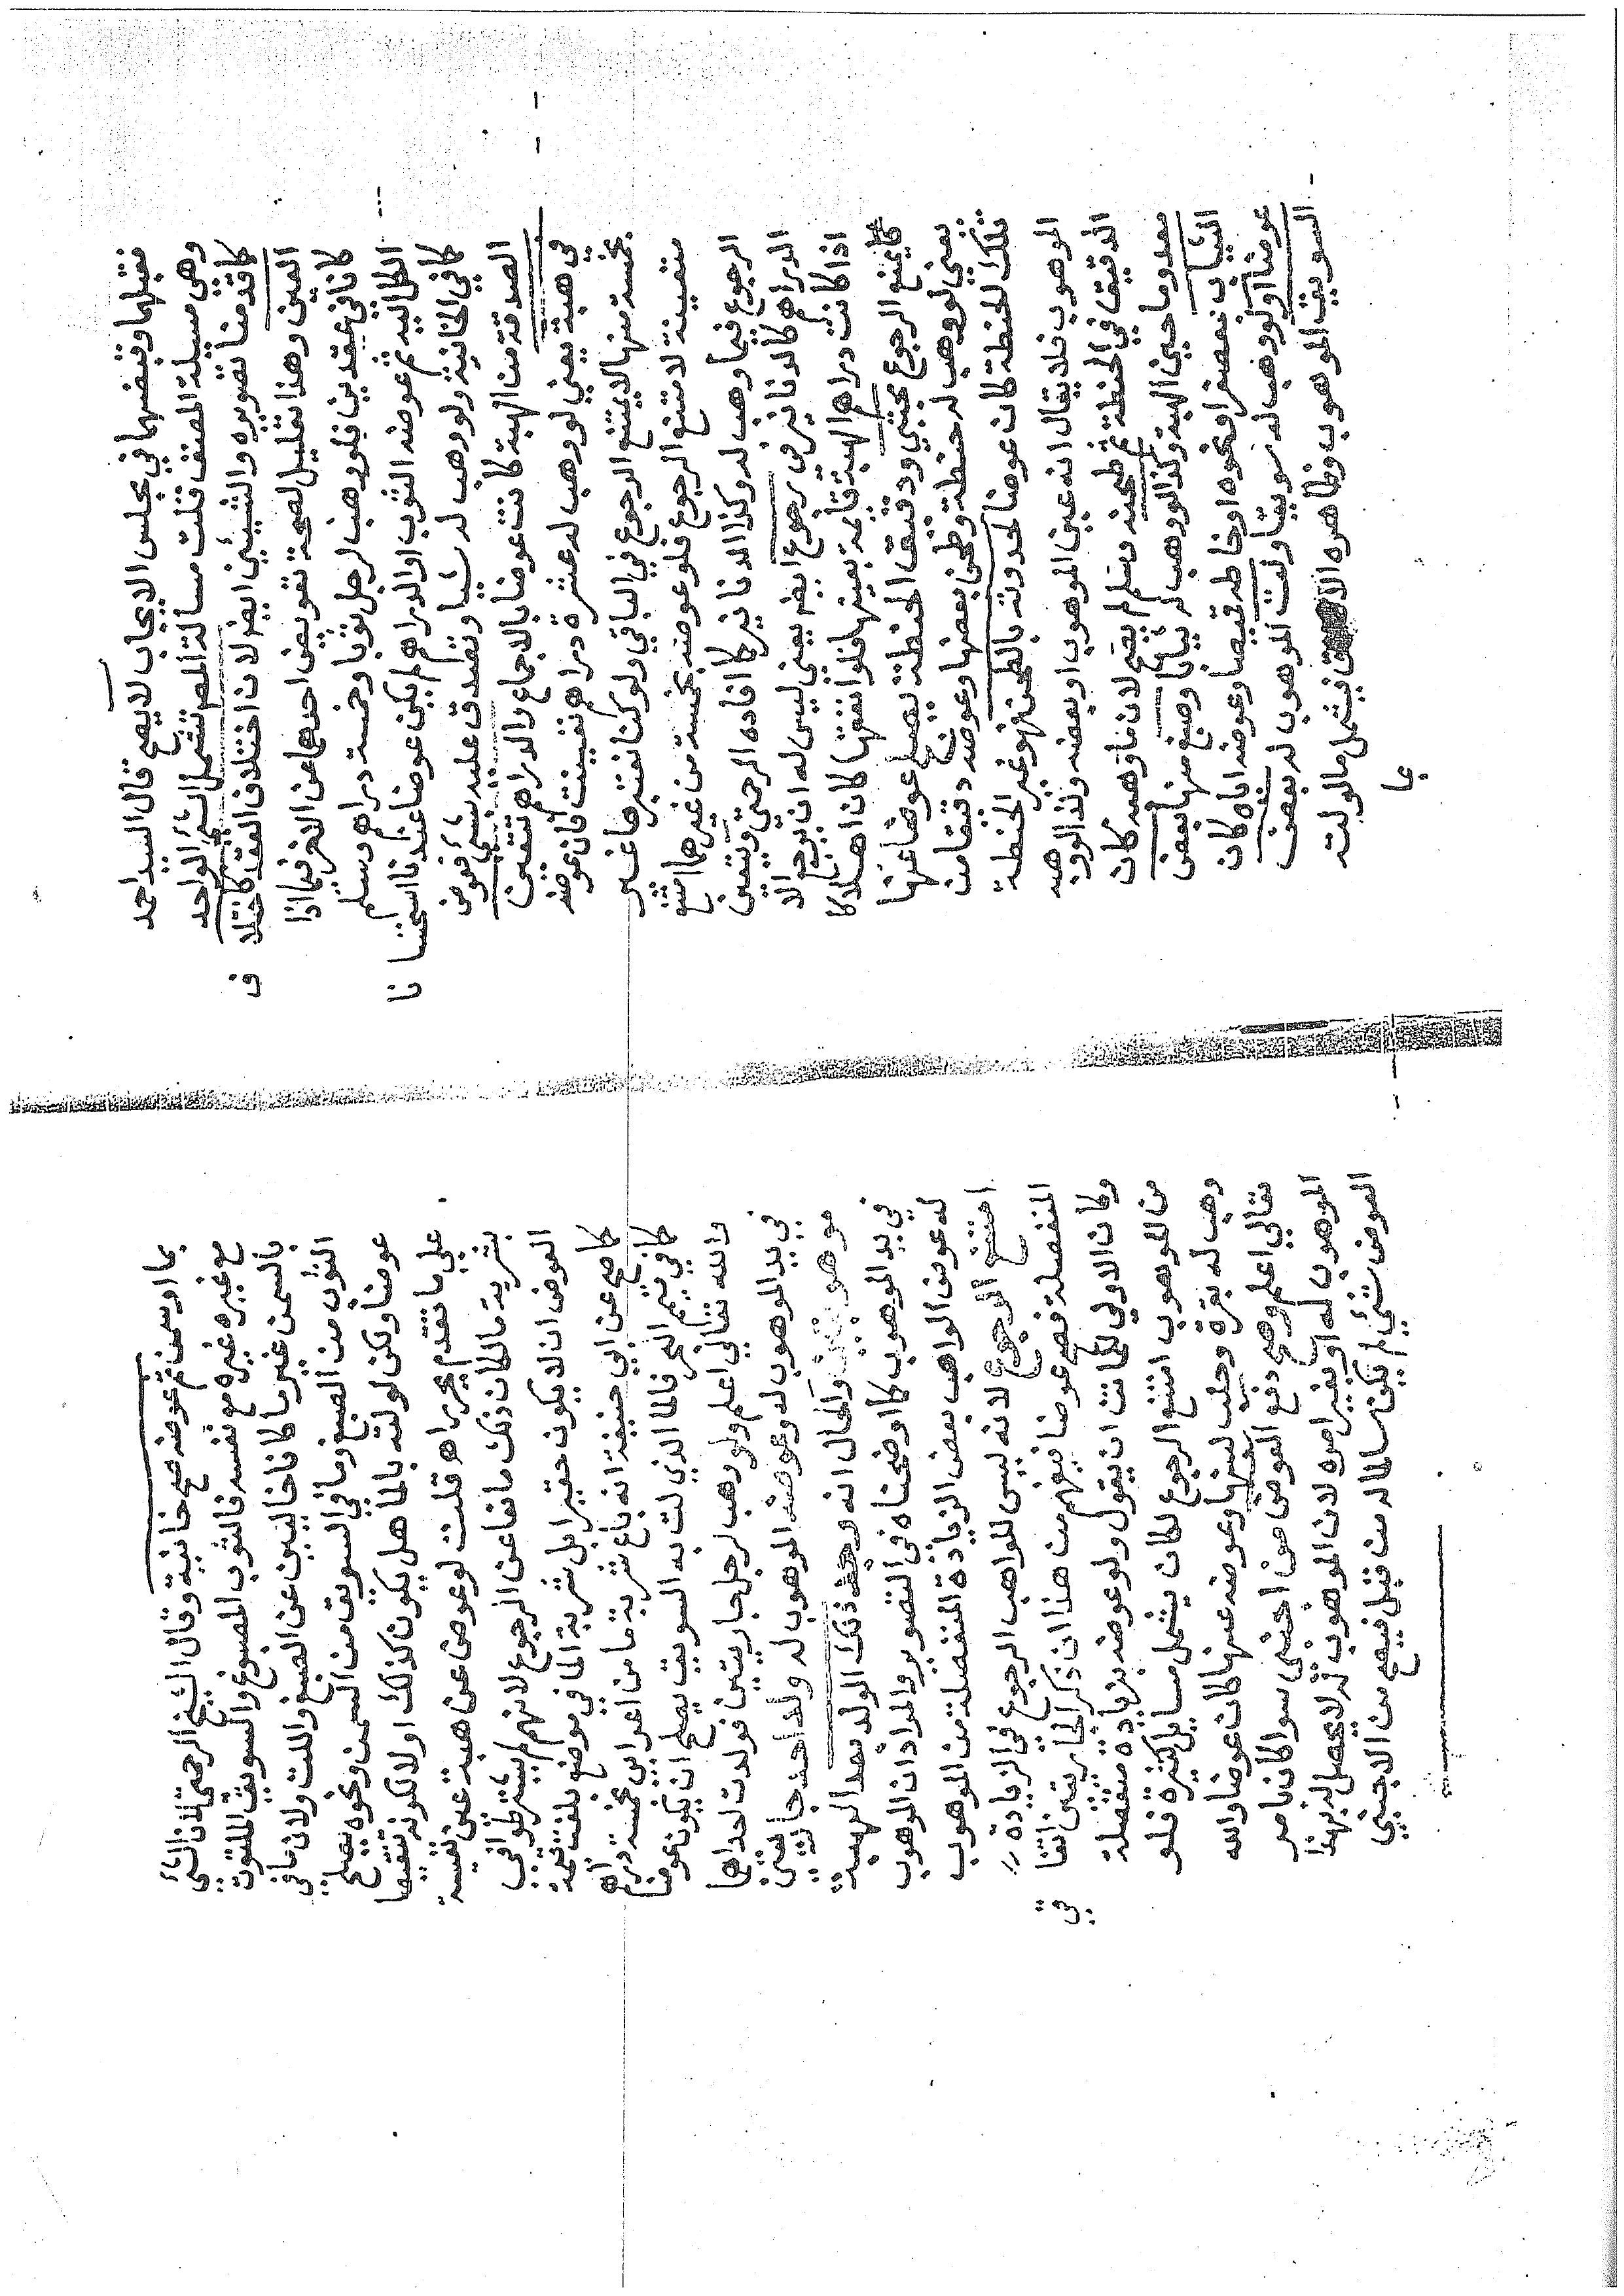 فتقبلها وقبضهما في مجلس الايجاب لا يصح قال السيد احمد
وهي مسيلة المصنف قلت مسألة المصنف تشمل الشئ الواحد
كما قدمنا تصويره والشيئين ايضا لان اختلاف العقد كاختلاف
العين وهذا تعليل لصحة تعويض احدهما عن الاخر فيما اذا
كانا في عقدين فلو وهب لرجل ثوبا وخمسة دراهم وسلم
الكل اليه ثم عوضه الثوب او الدراهم لم يكن عوضا عندنا استحسانا
كما في الخانية ولو وهب له شيئا وتصدق عليه بشئ فعوض
الصدقة من الهبة كانت عوضا بالاجماع والدراهم تتعين
في هبة يعني لو وهب له عشرة دراهم تعينت فان عوضه
بخمسة منها لا يمتنع الرجوع في الباقي ولو كنا نعتبرها غير
متعينة لامتنع الرجوع فلو عوضه بخمسة من غيرها امتنع
الرجوع فيما وهب له وكذا الدنانير كما افاده الرحمتي وتتعين
الدراهم كالدنانير في رجوع ايضا يعني ليس له ان يرجع الا
اذا كانت دراهم الهبة قايمة بعينها فلو انفقها كان اهلاكا
يمنع الرجوع مجتبي ودقيق الحنطة يصلح عوضا عنها
يعني لو وهب له حنطة وطحن بعضها وعوضه دقيقا من
تلك الحنطة كان عوضا لحدوثه بالطحن فهو غير الحنطة
الموهوب فلا يقال انه عين الموهوب او بعضه ولذا لو وهبه
الدقيق في الحنطة ثم طحنه وسلم لم يصح لان ما وهبه كان
معدوما حين الهبة وكذا لو وهب له ثيابا وصبغ منها بعض
الثياب بعصفر او نحوه او خاطه قميصا وعوضه اياه كان
عوضا او لو وهب له سويقا ولت الموهوب له بعض
السويق الموهوب وظاهره فيشمل ما لو لته
بما
بما او سمن ثم عوضه صح خانية وقال الشيخ الرحمتي لان الشئ
مع غيره غيره مع نفسه فالثوب المصبوغ والسويق الملتوت
بالسمن غير ما كانا خاليين عن الصبغ واللت ولان ما في
الثوب من الصبغ وما في السويق من السمن ونحوه يصلح
عوضا ولكن لو لته بالما هل يكون كذلك او لا لكونه تنقيصا
علي ما تقدم يحرر اهـ قلت لو عوض عن هبة عين نفيسة
بشربة ما لكان ذلك مانعا عن الرجوع لانهم لم يشترطوا في
العوض ان لا يكون حقيرا بل شربة الما في موضع بلغت قيمة
كما صح عن ابي حنيفة انه باع شربة ما من اعرابي بخمسة دراهم
كما في تيمم البحر فالما الذي لت به السويق يصلح ان يكون عوضا
والله تعالي اعلم ولو وهب لرجل جاريتين فولدت احداهما
في يد الموهوب له وعوضه الموهوب له ولد احد جاريتين
والحال انه وجد ذلك الولد بعد الهبة
في يد الموهوب كما اوضحناه في التصوير والمراد ان الموهوب
له عوض الواهب بعض الزيادة المنفصلة من الموهوب
امتنع الرجوع لانه ليس للواهب الرجوع في الزيادة
المنفصلة فصح عوضا فيفهم من هذا ان ذكر الجاريتين اتفاقي
وكان الاولي ان يقول ولو عوضه بزيادة منفصلة
من الموهوب امتنع الرجوع لكان يشمل مسايل كثيرة فلو
وهب له بقرة وحلب لبنها وعوضه عنها كان عوضا والله
تعالي اعلم وصح دفع العوض من اجنبي سوا كان بامر
الموهوب له او بغير امره لان الموهوب له لا يحصل له بهذا
العوض شئ لم يكن سالما له من قبل فيصح من الاجنبي